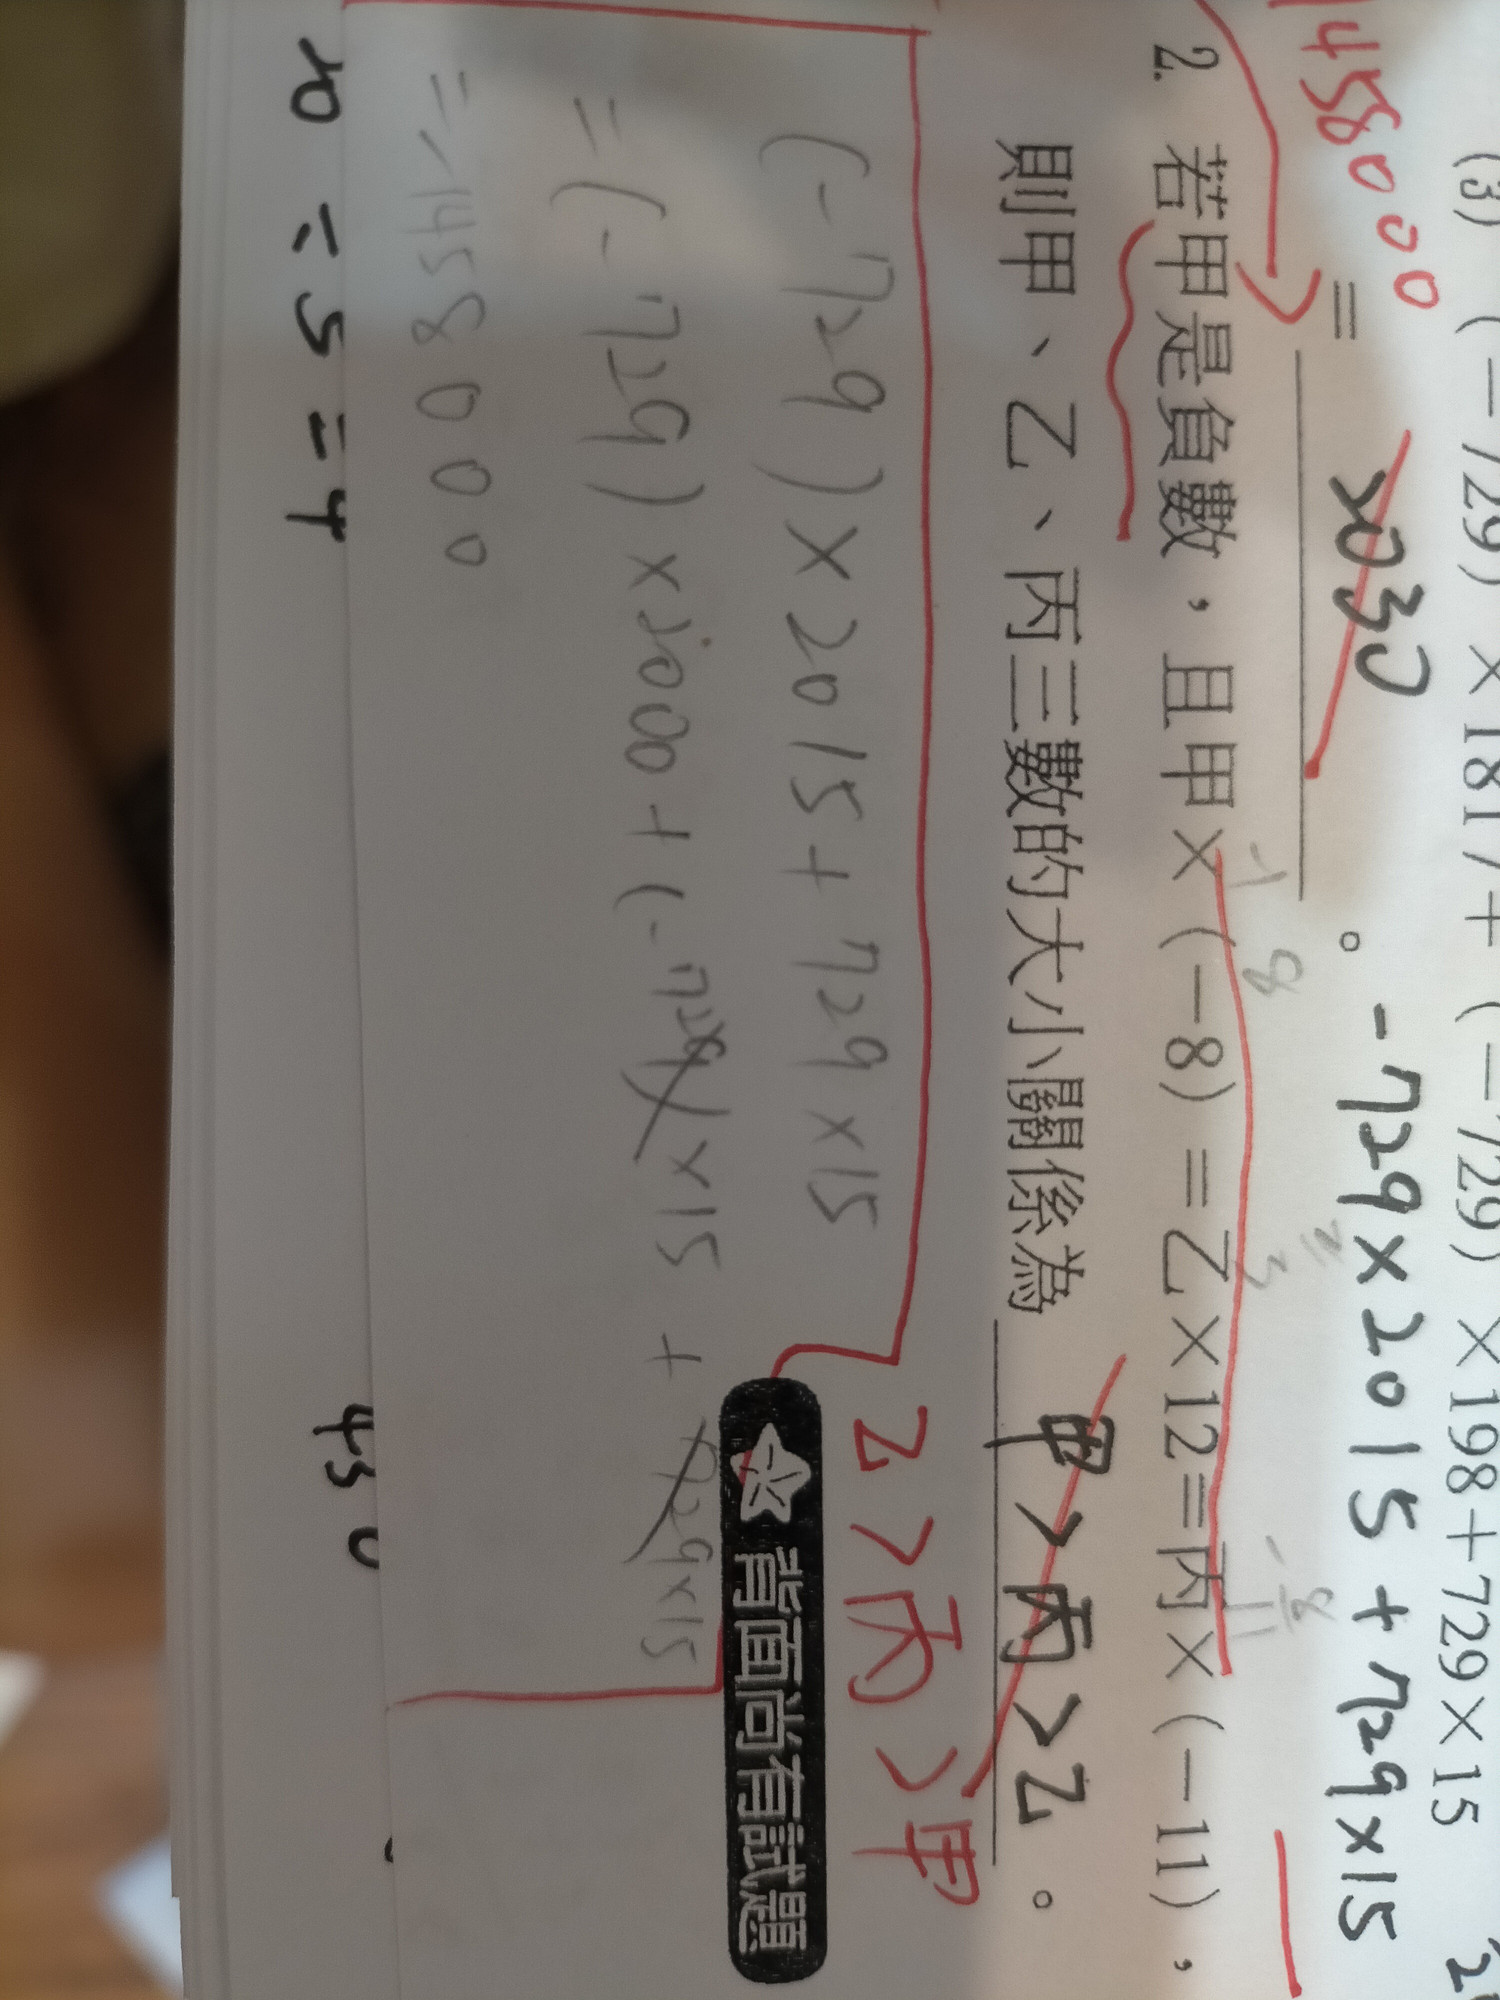 (3) (－729)×1817＋(－729)×198＋729×15
458000
＝ 2030 。 -729×2015+729×15
-1 8
2. 若甲是負數，且甲×(－8)＝乙×12＝丙×(－11)，
則甲、乙、丙三數的大小關係為 甲>丙>乙 。
乙>丙>甲
(-729)×2015+729×15
=(-729)×2000+(-729)×15+729×15
=-1458000
背面尚有試題
=5=4
45